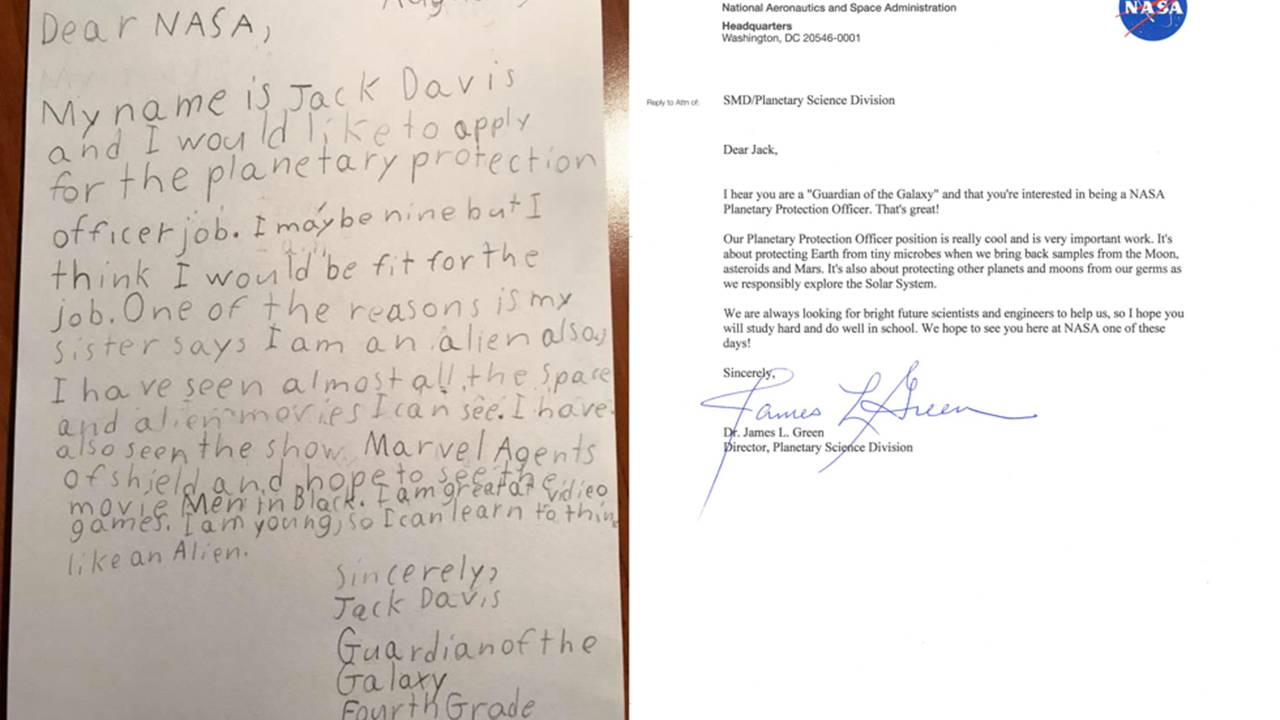 Dear NASA,
My name is Jack Davis
and I would like to apply
for the planetary protection
officer job. I maybe nine but I
think I would be fit for the
job. One of the reasons is my
sister says I am an alien also,
I have seen almost all the space
and alien movies I can see. I have
also seen the show Marvel Agents
of shield and hope to see the
movie Men in Black. I am great at vidieo
games. I am young, so I can learn to think
like an Alien.
Sincerely,
Jack Davis
Guardian of the
Galaxy
Fourth Grade
National Aeronautics and Space Administration
Headquarters
Washington, DC 20546-0001
NASA
Reply to Attn of:
SMD/Planetary Science Division
Dear Jack,
I hear you are a "Guardian of the Galaxy" and that you're interested in being a NASA
Planetary Protection Officer. That's great!
Our Planetary Protection Officer position is really cool and is very important work. It's
about protecting Earth from tiny microbes when we bring back samples from the Moon,
asteroids and Mars. It's also about protecting other planets and moons from our germs as
we responsibly explore the Solar System.
We are always looking for bright future scientists and engineers to help us, so I hope you
will study hard and do well in school. We hope to see you here at NASA one of these
days!
Sincerely,
James L Green
Dr. James L. Green
Director, Planetary Science Division